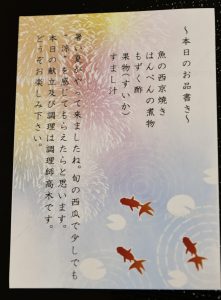 ～本日のお品書き～
魚の西京焼き
はんぺんの煮物
もずく酢
果物(すいか)
すまし汁
暑い夏がやって来ましたね。旬の西瓜で少しでも
“涼”を感じてもらえたらと思います。
本日の献立及び調理は調理師高木です。
どうぞお楽しみ下さい。